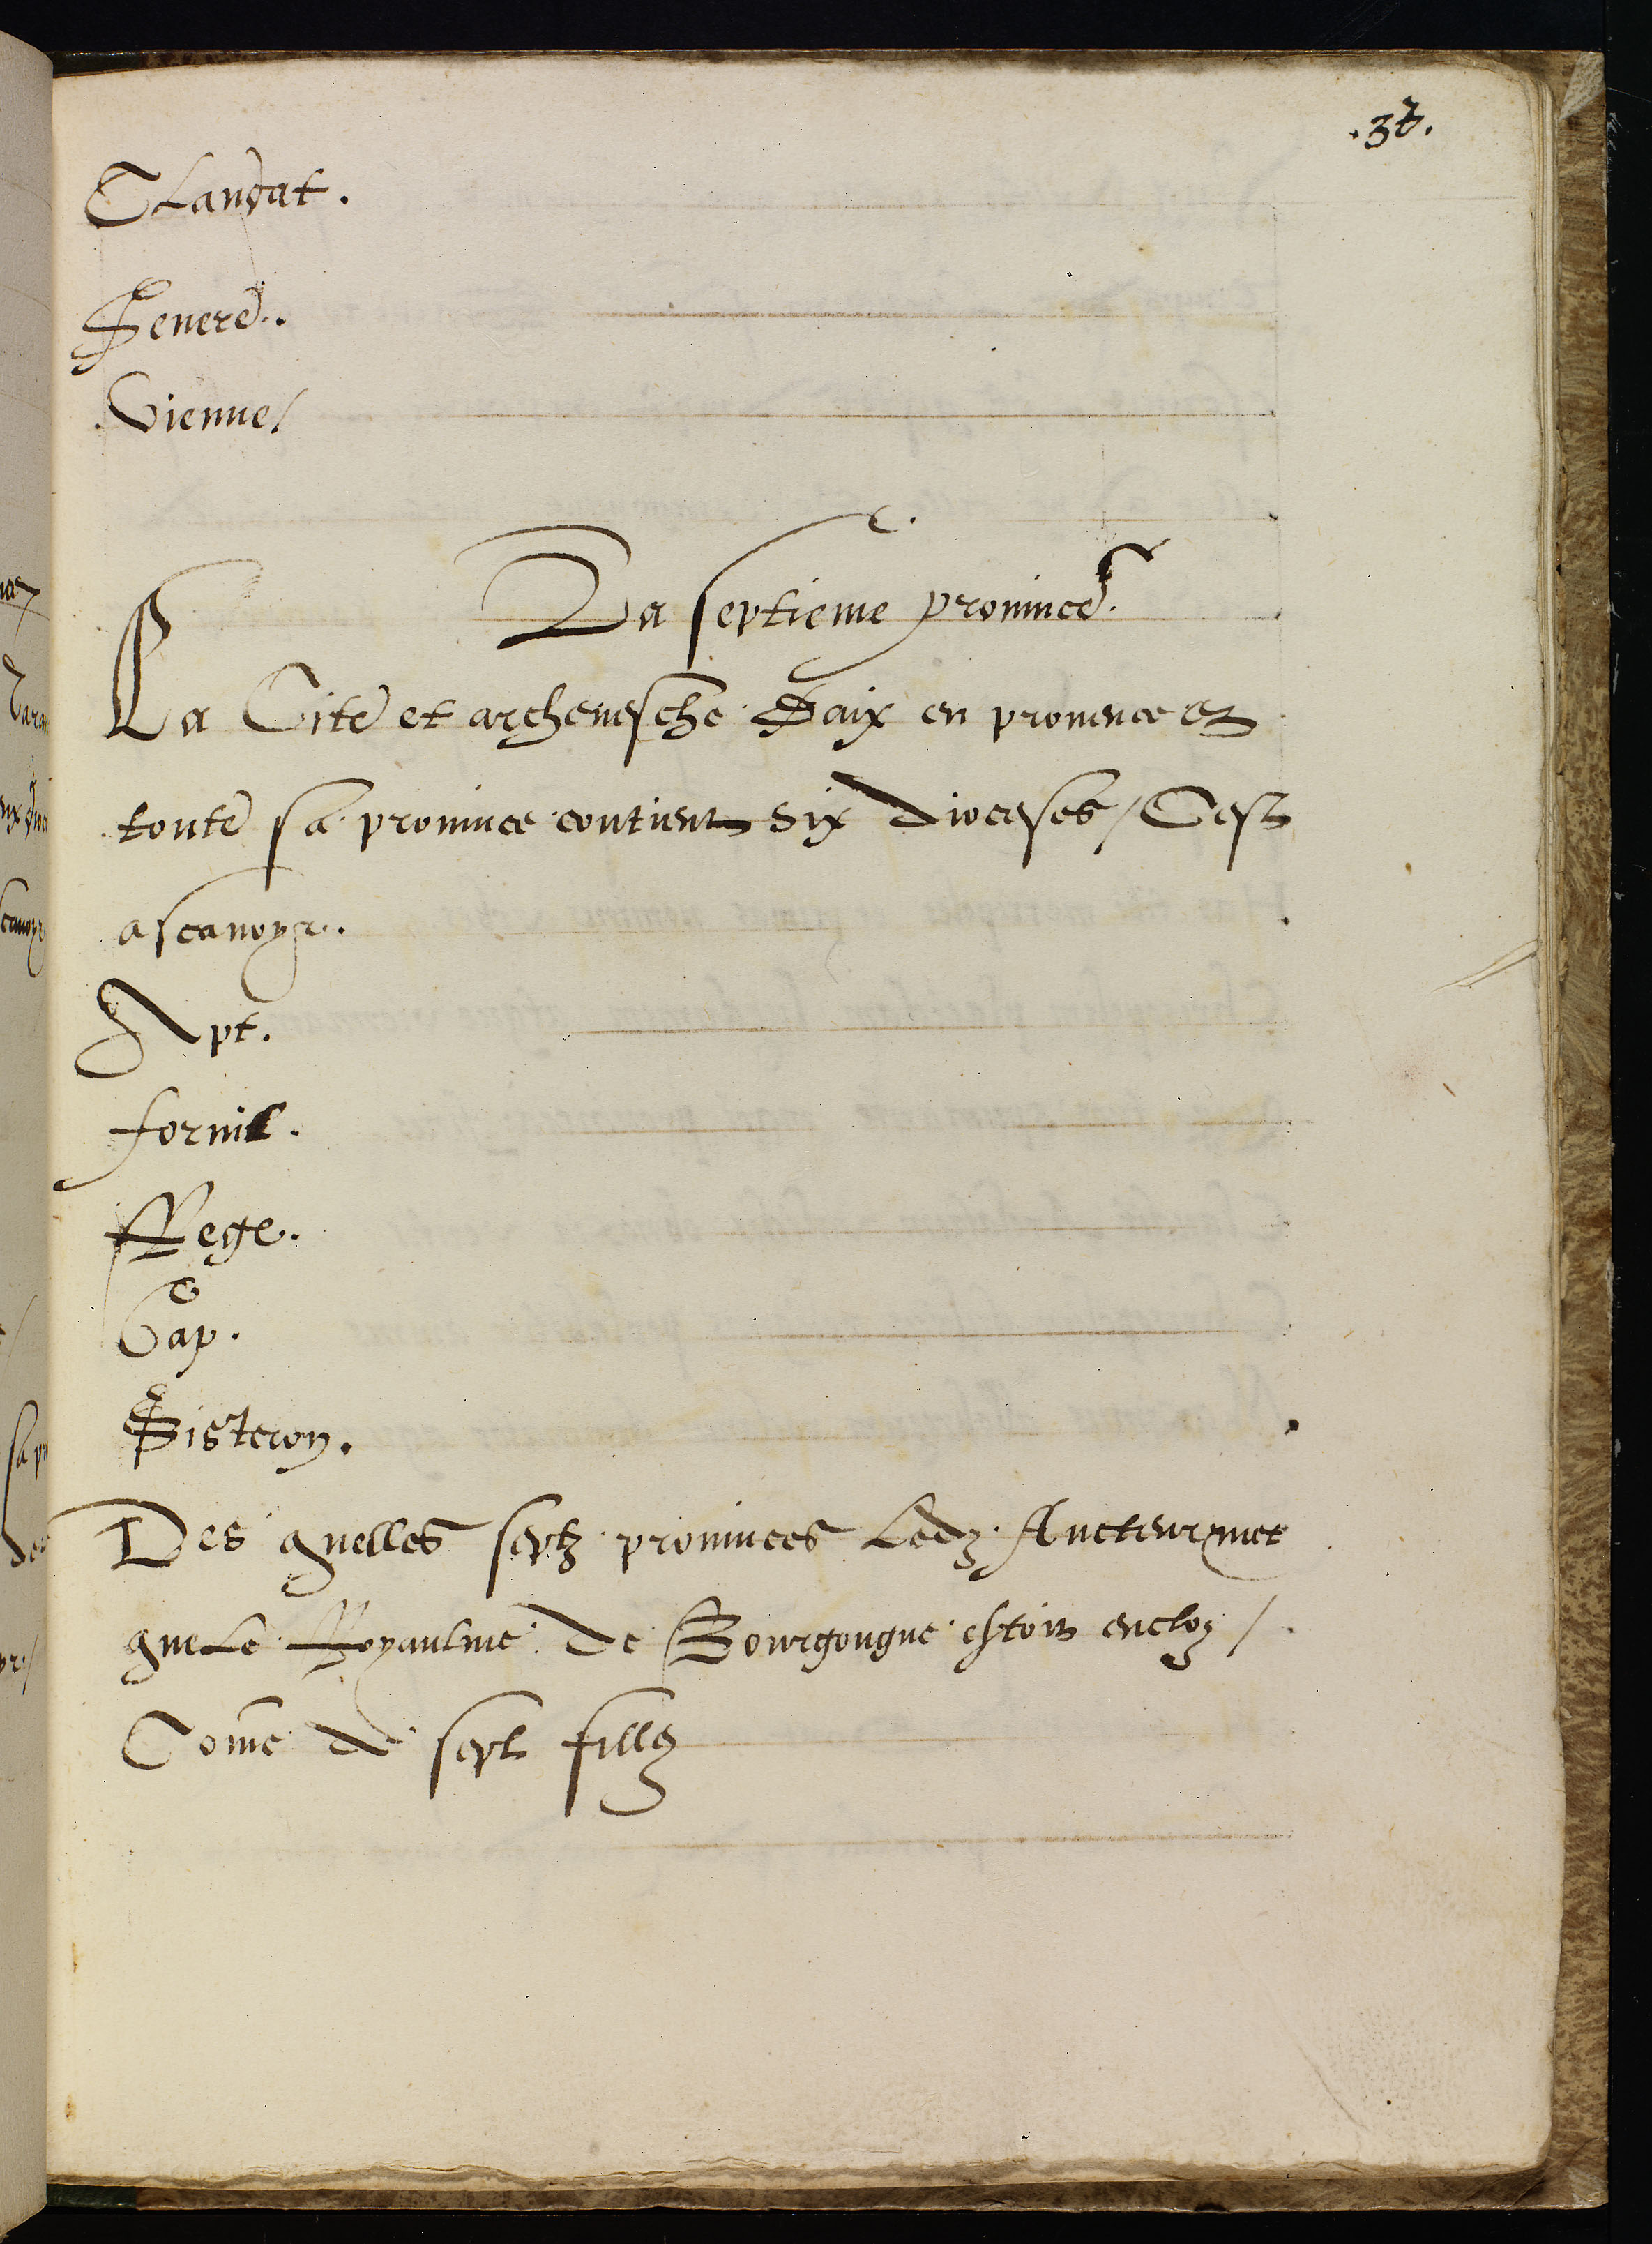 .37.
Clandat.
Senere.
Vienne/
La septieme province.
La Cite et archevesche Daix en provence et
toute sa province contient six dioceses / Cest
ascavoyr.
Apt.
fornil.
Rege.
Gap.
Sisteron.
Des quelles septz provinces Ledz Aucteur met
que Le Royaulme de Bourgongne estoit encloz /
Come de sept fillz